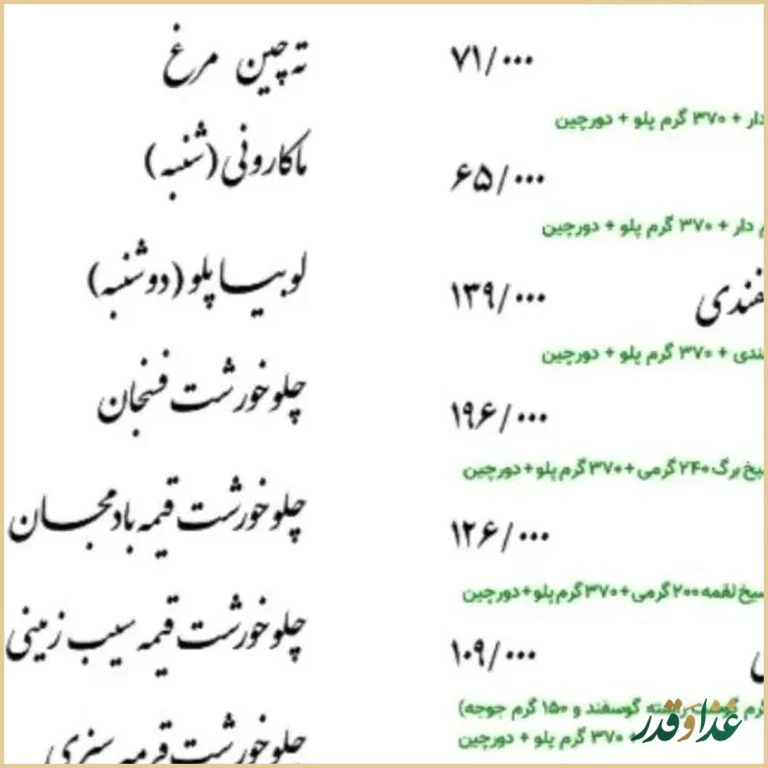 ۷۱/۰۰۰
دار + ۳۷۰ گرم پلو + دورچین
۶۵/۰۰۰
دار + ۳۷۰ گرم پلو + دورچین
۱۳۹/۰۰۰
+ ۳۷۰ گرم پلو + دورچین
۱۹۶/۰۰۰
برگ ۲۴۰ گرمی + ۳۷۰ گرم پلو + دورچین
۱۲۶/۰۰۰
سیخ لقمه ۲۰۰ گرمی + ۳۷۰ گرم پلو + دورچین
۱۰۹/۰۰۰
گوسفند و ۱۵۰ گرم جوجه)
+ ۳۷۰ گرم پلو + دورچین
ته چین مرغ
ماکارونی (شنبه)
لوبیا پلو (دوشنبه)
چلو خورشت فسنجان
چلو خورشت قیمه بادمجان
چلو خورشت قیمه سیب زمینی
چلو خورشت قرمه سبزی
غذا و قدر